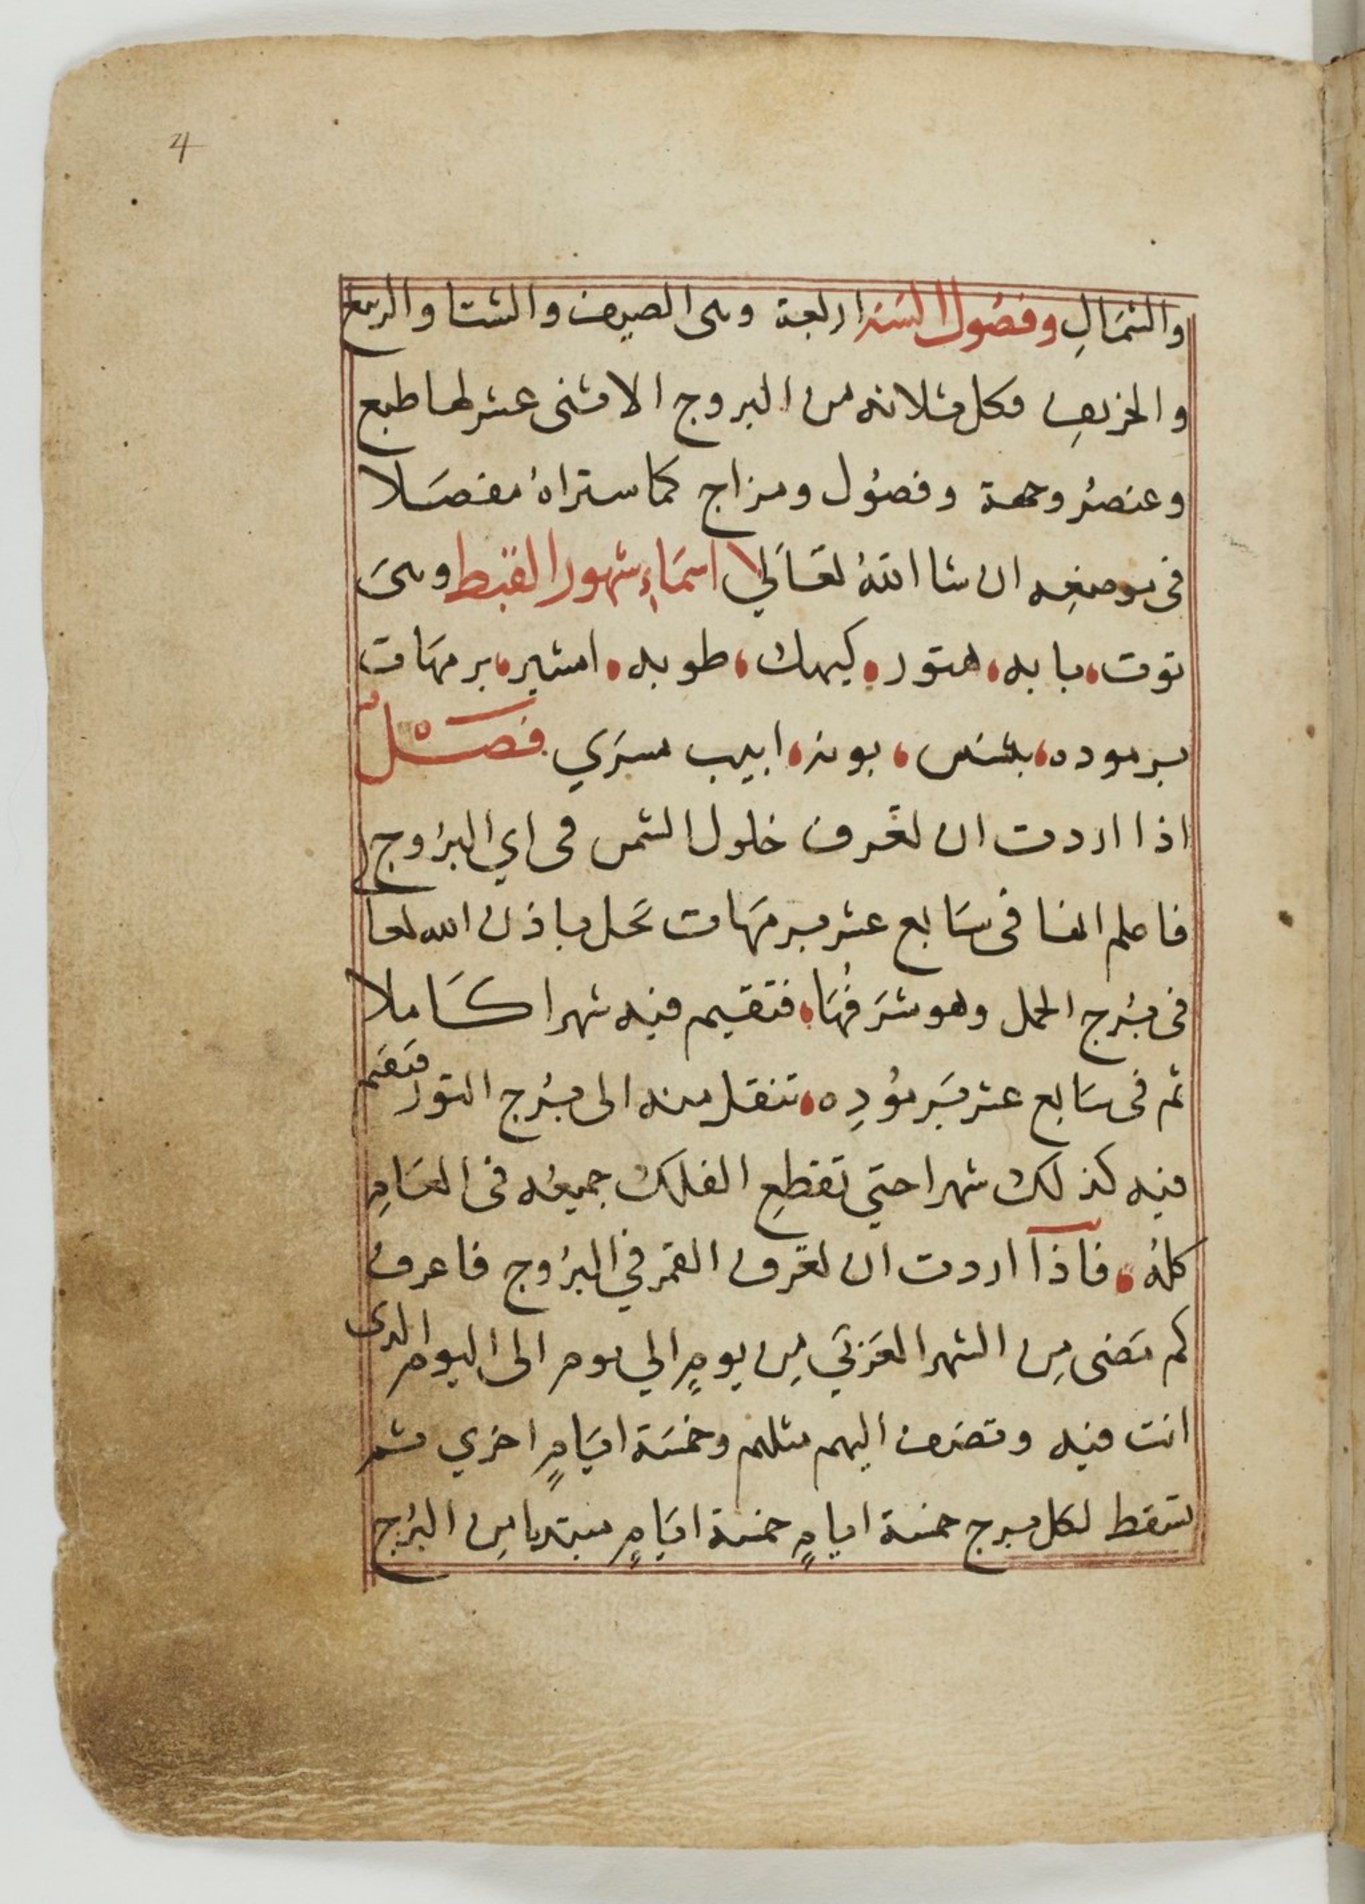 4
والشمَالِ وفصُول السَنه اربعة وهى الصيف والشتا والربيع
والخريفِ فكل ثلاثه من البروج الاثنى عشر لها طبع
وعنصرُ وجهة وفصُول ومزاج كما ستراهُ مفصَلا
فى موضعِه ان شا اللهُ تعَالي اسمَاءِ شهور القبط وهىَ
توت، بابه، هتور، كيهك، طوبه، امشير، برمهَات
برموده، بشنس، بونه، ابيب مسرَي فصَـْـلٌ
اذا اردت ان تعَرف حلول الشمس فى اي البرُوج
فاعلم انها فى سَابع عشر برمهَات تحَل باذن الله تعا
فى برُج الحمل وهو شرَفُهَا، فتقيم فيه شهرا كَاملا
ثم فى سَابع عشر برَموُدِه، تنقل منه الى برُج الثور فتقَيم
فيه كذلك شهرا حتي تقطعِ الفلك جميعُه فى العَامِ
كلهُ، فاذآ اردت ان تعَرف القمر في البرُوج فاعرف
كم مَضى مِن الشهر العَرَبيَ مِن يومٍ الي يوم الى اليوم الدى
انت فيه وتضف اليهم مثلهم وخمسَة ايَامٍ اخري ثم
تسقط لكل برج خمسة ايامٍ خمسة ايَامٍ مبتديا مِن البرُج